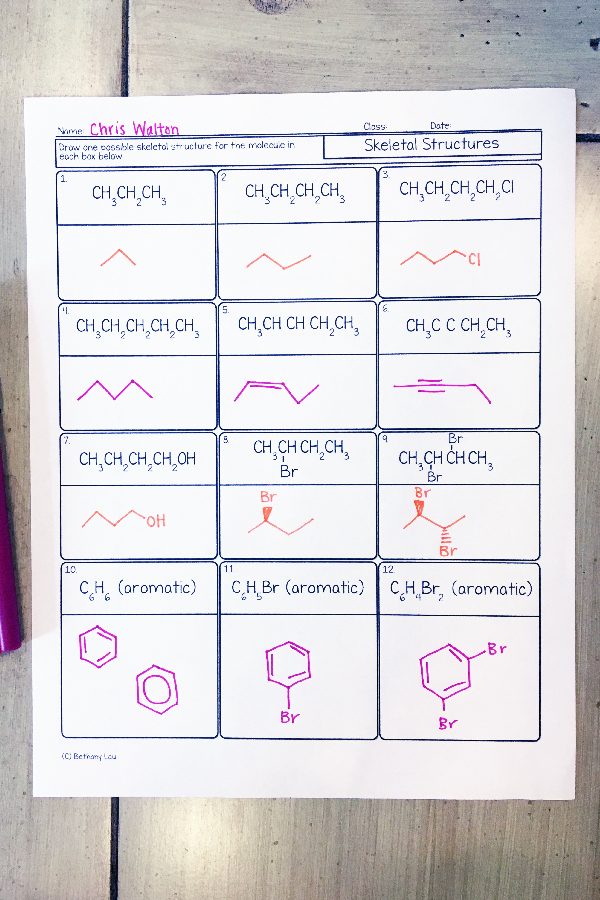 Name: Chris Walton Class: Date:
Draw one possible skeletal structure for the molecule in
each box below
Skeletal Structures
1.
CH₃CH₂CH₃
2
CH₃CH₂CH₂CH₃
3.
CH₃CH₂CH₂CH₂Cl
Cl
4.
CH₃CH₂CH₂CH₂CH₃
5.
CH₃CH CH CH₂CH₃
6.
CH₃C C CH₂CH₃
7.
CH₃CH₂CH₂CH₂OH
OH
8.
CH₃CH CH₂CH₃
Br
Br
9.
Br
CH₃CH CH CH₃
Br
Br
Br
10.
C₆H₆ (aromatic)
11
C₆H₅Br (aromatic)
Br
12.
C₆H₄Br₂ (aromatic)
Br
Br
(C) Bethany Lau